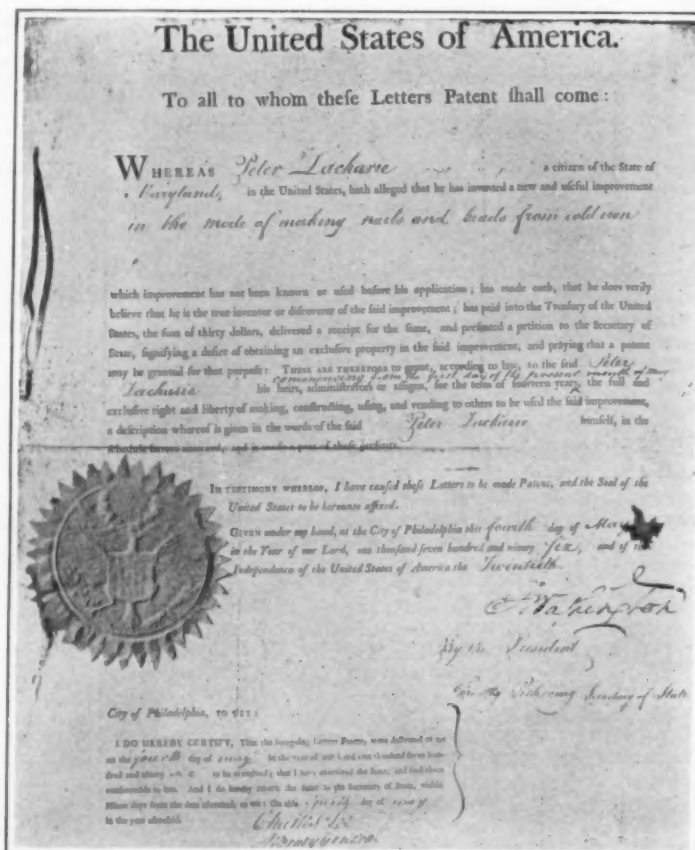 The United States of America.
To all to whom theſe Letters Patent ſhall come:
WHEREAS Peter Zacharie a citizen of the State of
Maryland, in the United States, hath alleged that he has invented a new and uſeful improvement
in the mode of making nails and brads from cold iron
which improvement has not been known or uſed before his application; has made oath, that he does verily
believe that he is the true inventor or diſcoverer of the ſaid improvement; has paid into the Treaſury of the United
States, the ſum of thirty dollars, delivered a receipt for the ſame, and preſented a petition to the Secretary of
State, ſignifying a deſire of obtaining an excluſive property in the ſaid improvement, and praying that a patent
may be granted for that purpoſe: THESE ARE THEREFORE to grant, according to law, to the ſaid Peter
commencing from the first day of the present month of May
Zacharie his heirs, adminiſtrators or aſſigns, for the term of fourteen years, the full and
excluſive right and liberty of making, conſtructing, uſing, and vending to others to be uſed the ſaid improvement,
a deſcription whereof is given in the words of the ſaid Peter Zacharie himſelf, in the
ſchedule hereto annexed, and is made a part of theſe preſents.
IN TESTIMONY WHEREOF, I have cauſed theſe Letters to be made Patent, and the Seal of the
United States to be hereunto affixed.
GIVEN under my hand, at the City of Philadelphia this fourth day of May
in the Year of our Lord, one thouſand ſeven hundred and ninety Six, and of the
Independence of the United States of America the Twentieth.
G. Washington
By the President
Timothy Pickering Secretary of State
City of Philadelphia, TO WIT:
I DO HEREBY CERTIFY, That the foregoing Letters Patent, were delivered to me
on the fourth day of May in the year of our Lord one thouſand ſeven hun-
dred and ninety to be examined; that I have examined the ſame, and find them
conformable to law. And I do hereby return the ſame to the Secretary of State, within
fifteen days from the date aforeſaid, to wit: On this day of May
in the year aforeſaid.
Charles Lee
Attorney General